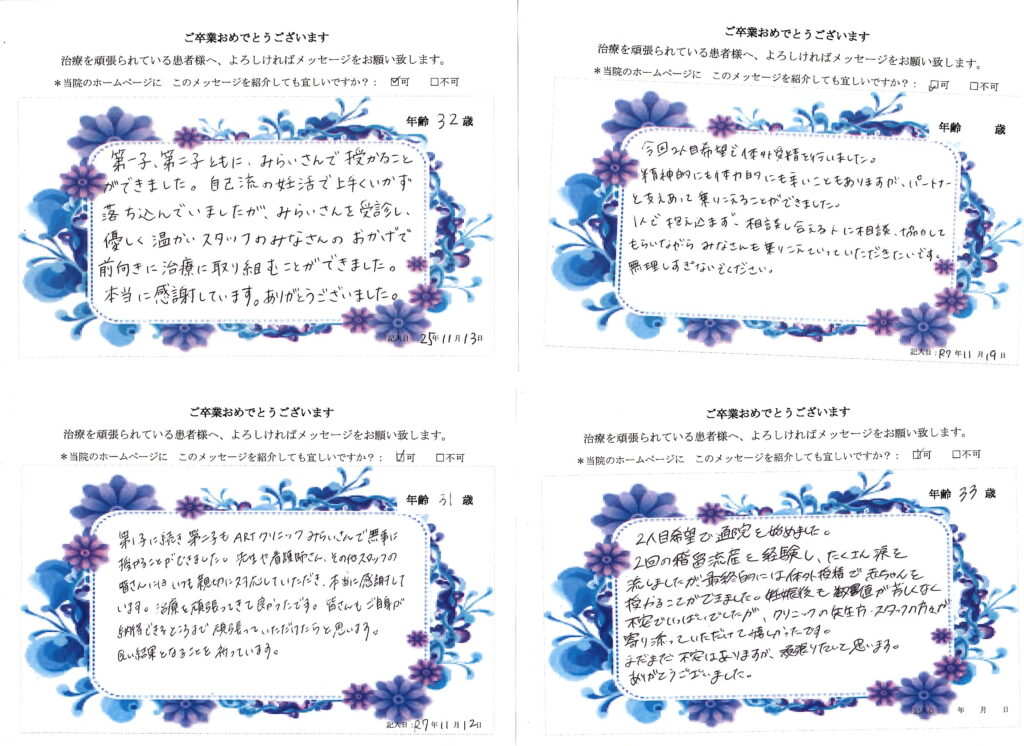 ご卒業おめでとうございます
治療を頑張られている患者様へ、よろしければメッセージをお願い致します。
＊当院のホームページに　このメッセージを紹介しても宜しいですか？： ☑可　□不可
年齢 32 歳
第一子、第二子ともに、みらいさんで授かること
ができました。自己流の妊活で上手くいかず
落ち込んでいましたが、みらいさんを受診し、
優しく温かいスタッフのみなさんのおかげで
前向きに治療に取り組むことができました。
本当に感謝しています。ありがとうございました。
記入日：25年11月13日
ご卒業おめでとうございます
治療を頑張られている患者様へ、よろしければメッセージをお願い致します。
＊当院のホームページに　このメッセージを紹介しても宜しいですか？： ☑可　□不可
年齢　　歳
今回2人目希望で体外受精を行いました。
精神的にも体力的にも辛いこともありますが、パートナー
と支えあって乗りこえることができました。
1人で抱え込まず、相談し合える人に相談、協力して
もらいながら みなさんも乗りこえていっていただきたいです。
無理しすぎないでください。
記入日：R7年11月19日
ご卒業おめでとうございます
治療を頑張られている患者様へ、よろしければメッセージをお願い致します。
＊当院のホームページに　このメッセージを紹介しても宜しいですか？： ☑可　□不可
年齢 31 歳
第1子に続き第二子もARTクリニックみらいさんで無事に
授かることができました。先生や看護師さん、その他スタッフの
皆さんにはいつも親切に対応していただき、本当に感謝して
います。治療を頑張ってきて良かったです。皆さんもご自身が
納得できるところまで頑張っていただけたらと思います。
良い結果となることを祈っています。
記入日：R7年11月12日
ご卒業おめでとうございます
治療を頑張られている患者様へ、よろしければメッセージをお願い致します。
＊当院のホームページに　このメッセージを紹介しても宜しいですか？： ☑可　□不可
年齢 33 歳
2人目希望で通院を始めました。
2回の稽留流産を経験し、たくさん涙を
流しましたが最終的には体外授精で赤ちゃんを
授かることができました。妊娠後も数値が芳しくなく
不安でいっぱいでしたが、クリニックの先生方・スタッフの方々が
寄り添っていただけて嬉しかったです。
まだまだ不安はありますが、頑張りたいと思います。
ありがとうございました。
記入日：　年　月　日